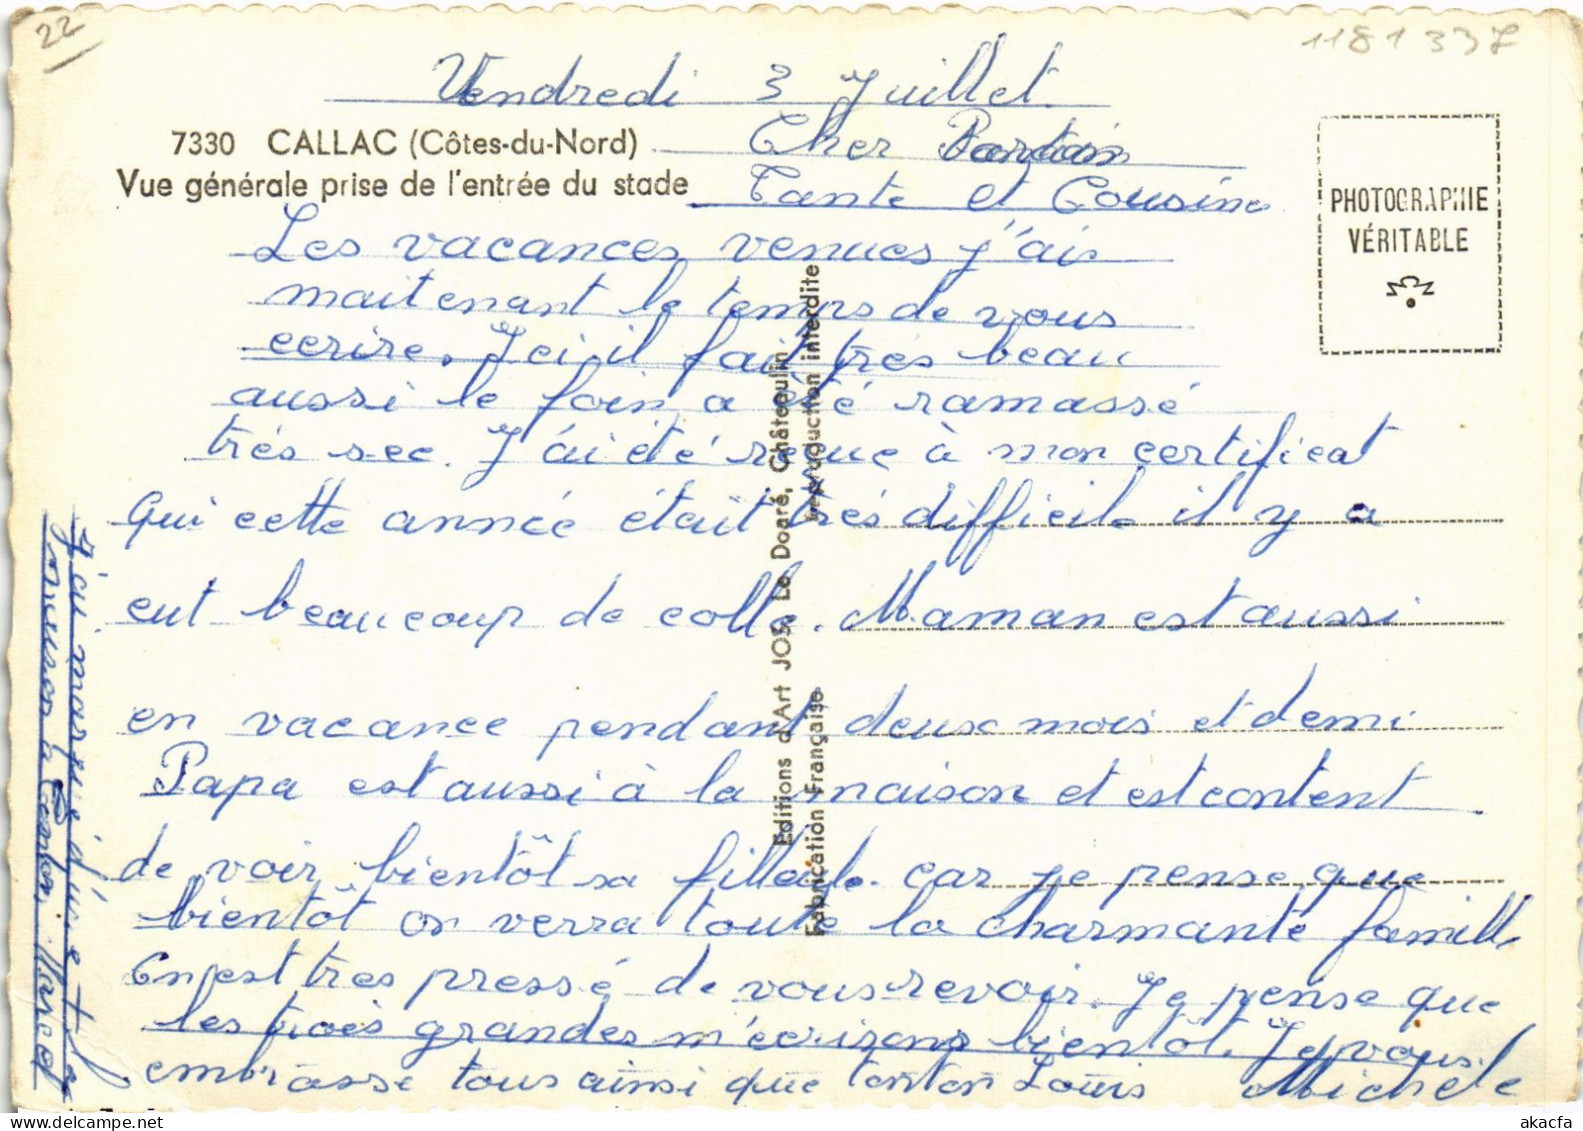 22
1181337
Vendredi 3 Juillet.
7330 CALLAC (Côtes-du-Nord)
Vue générale prise de l'entrée du stade
Cher
Tante et Cousine
PHOTOGRAPHIE
VÉRITABLE
Les vacances venues j'ais
maitenant le temps de vous
ecrire. Ici il fait très beau
aussi le foin a été ramassé
trés sec. J'ai été reçue à mon certificat
qui cette année était trés difficile il y a
eut beaucoup de colle. Maman est aussi
en vacance pendant deux mois et demi
Papa est aussi à la maison et est content
de voir bientôt sa filleule. car je pense que
bientôt on verra toute la charmante famille
On est tres pressé de vous revoir. Je pense que
les trois grandes m'écrirons bientôt. Je vous
embrasse tous ainsi que tonton Louis Michele
Editions d'Art JOS Le Doaré, Châteaulin
Fabrication Française reproduction interdite
akacfa